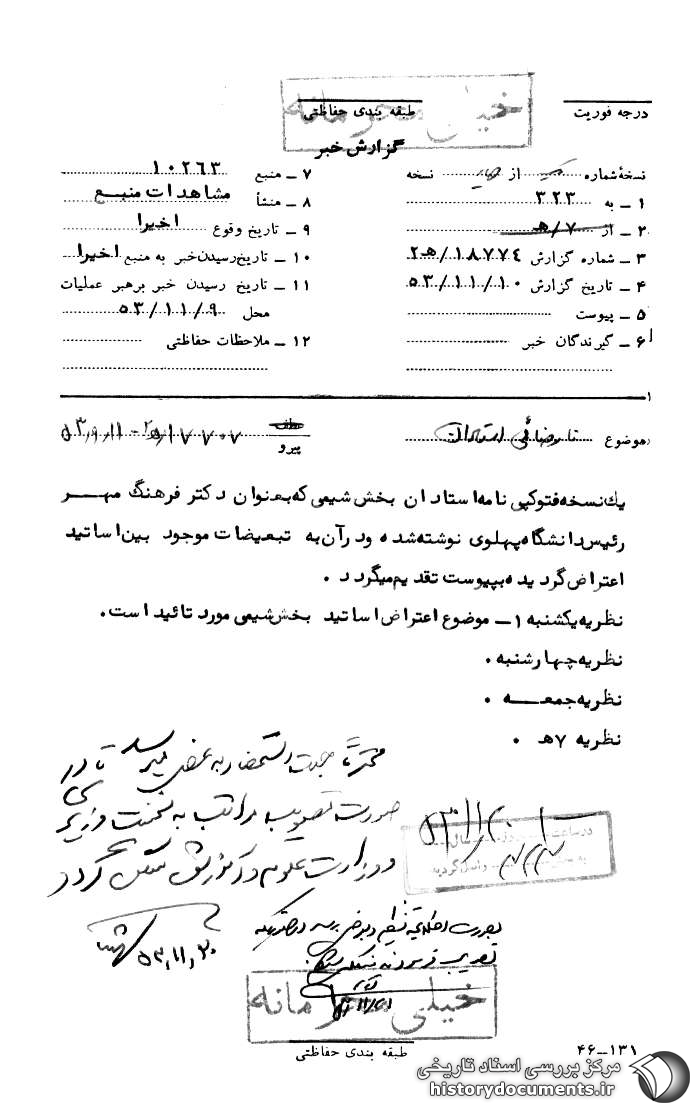 خیلی محرمانه
درجه فوریت
طبقه بندی حفاظتی
گزارش خبر
نسخهٔ شماره از نسخه
۱ ـ به ۳۲۳
۲ ـ از ۷/هـ
۳ ـ شماره گزارش ۱۸۷۷۴/هـ۲
۴ ـ تاریخ گزارش ۵۳/۱۱/۱۰
۵ ـ پیوست
۶ ـ گیرندگان خبر
۷ ـ منبع ۱۰۲۶۳
۸ ـ منشأ مشاهدات منبع
۹ ـ تاریخ وقوع اخیرا
۱۰ ـ تاریخ رسیدن خبر به منبع اخیرا
۱۱ ـ تاریخ رسیدن خبر برهبر عملیات
محل ۵۳/۱۱/۹
۱۲ ـ ملاحظات حفاظتی
موضوع نارضائی استادان
عطف
پیرو
یك نسخه فتوکپی نامه استادان بخش شیمی که بعنوان دکتر فرهنگ مهر
رئیس دانشگاه پهلوی نوشته شده و در آن به تبعیضات موجود بین اساتید
اعتراض گردیده بپیوست تقدیم میگردد .
نظریه یکشنبه ۱ـ موضوع اعتراض اساتید بخش شیمی مورد تائید است .
نظریه چهارشنبه .
نظریه جمعه .
نظریه ۷هـ .
محترماً جهت استحضار به عرض میرسد تا در
صورت تصویب مراتب به نخست وزیری
و وزارت علوم و آموزش عالی منعکس گردد
۵۳/۱۱/۲۰
خیلی محرمانه
طبقه بندی حفاظتی
۴۶ـ۱۳۱
مرکز بررسی اسناد تاریخی
historydocuments.ir